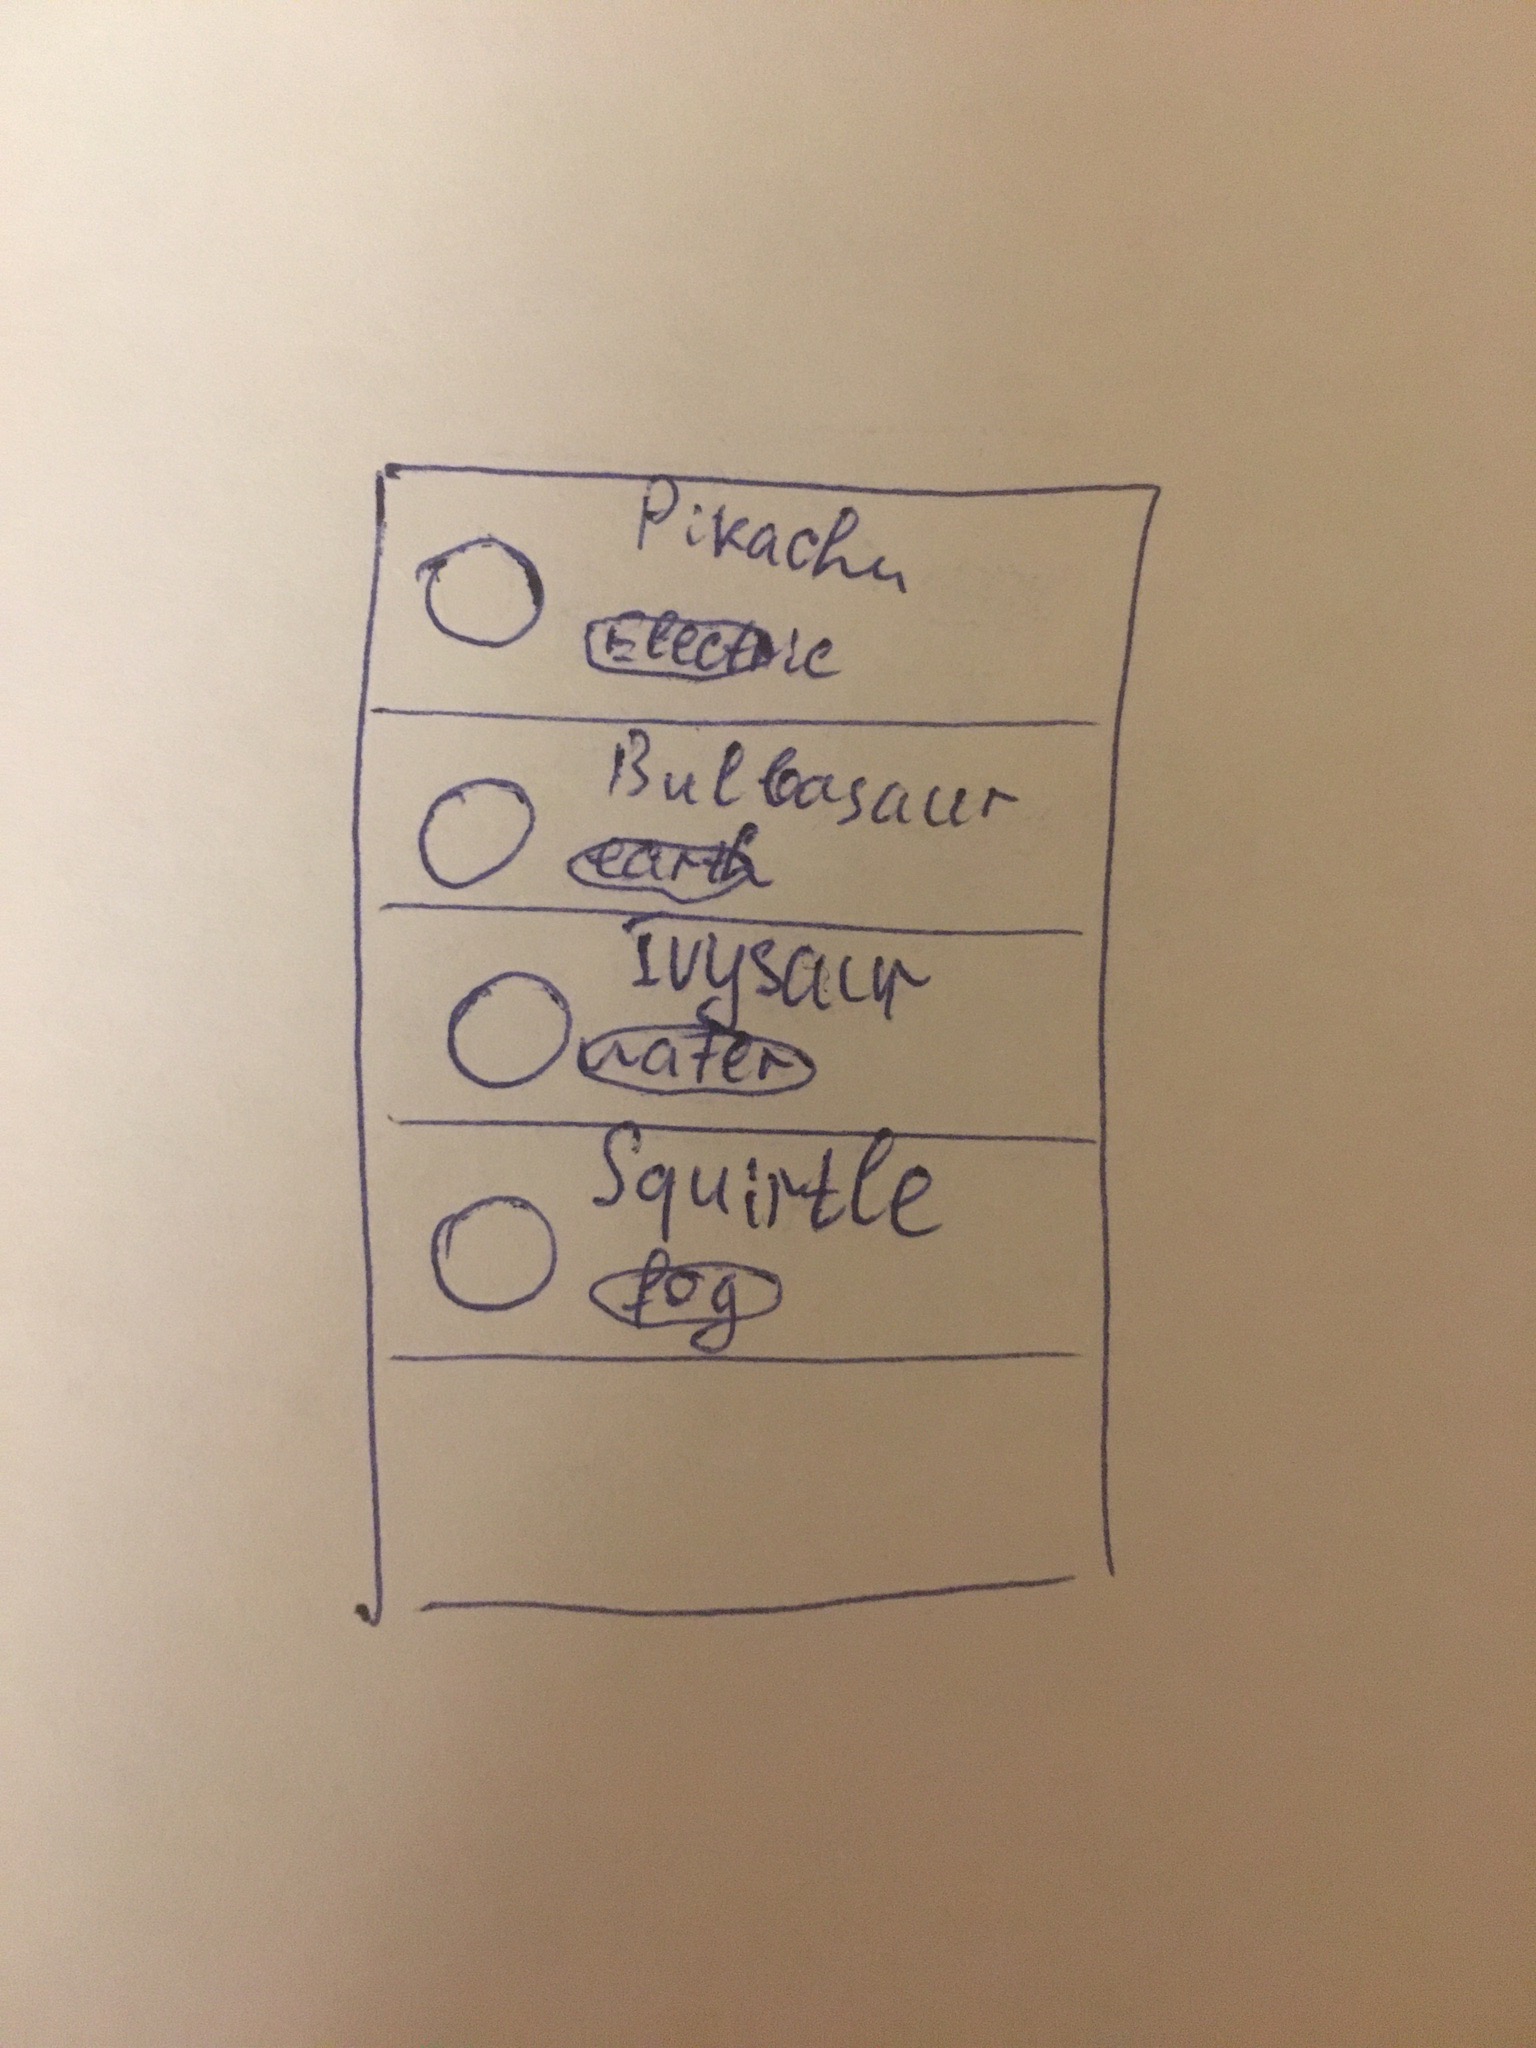 Pikachu
Electric
Bulbasaur
earth
Ivysaur
water
Squirtle
fog